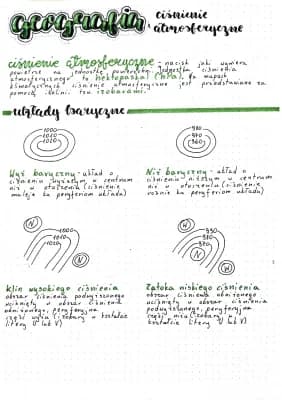 geografia
ciśnienie
atmosferyczne
ciśnienie atmosferyczne - nacisk jaki wywiera
powietrze na jednostkę powierzchni. Jednostką ciśnienia
atmosferycznego są hektopaskal (hPa). Na mapach
klimatycznych ciśnienie atmosferyczne jest przedstawiane za
pomocą izolinii tzw. izobarami.
układy baryczne
1000
1010
1020
990
970
960
Wyż baryczny - układ o
ciśnieniu wyższym w centrum
niż w otoczeniu (ciśnienie
maleje ku peryferiom układu)
Niż baryczny - układ o
ciśnieniu niższym w centrum
niż w otoczeniu (ciśnienie
rośnie ku peryferiom układu)
N
1000
1010
1020
W
N
W
Klin wysokiego ciśnienia
obszar ciśnienia podwyższonego
wciśnięty w obszar ciśnienia
obniżonego, peryferyjna
część wyżu (izobary w kształcie
litery U lub V)
Zatoka niskiego ciśnienia
obszar ciśnienia obniżonego
wciśnięty w obszar ciśnienia
podwyższonego, peryferyjna
część niżu (izobary w
kształcie litery U lub V)